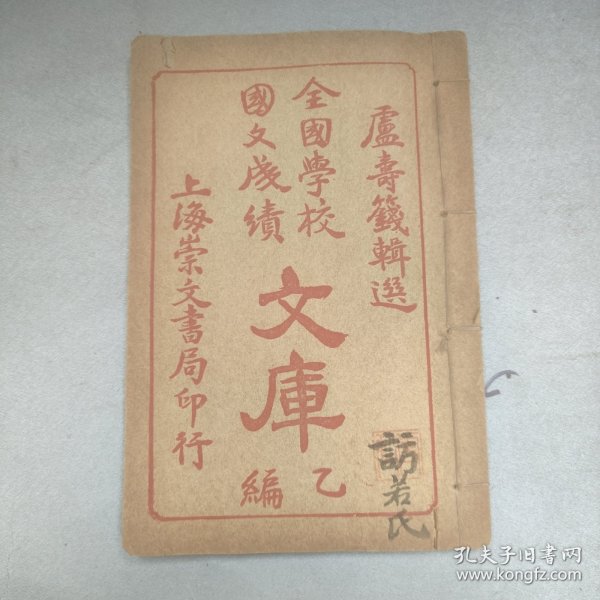 盧壽籛輯選
全國學校
國文成績
文庫
乙
編
上海崇文書局印行
訪若氏
孔夫子旧书网
www.kongfz.com